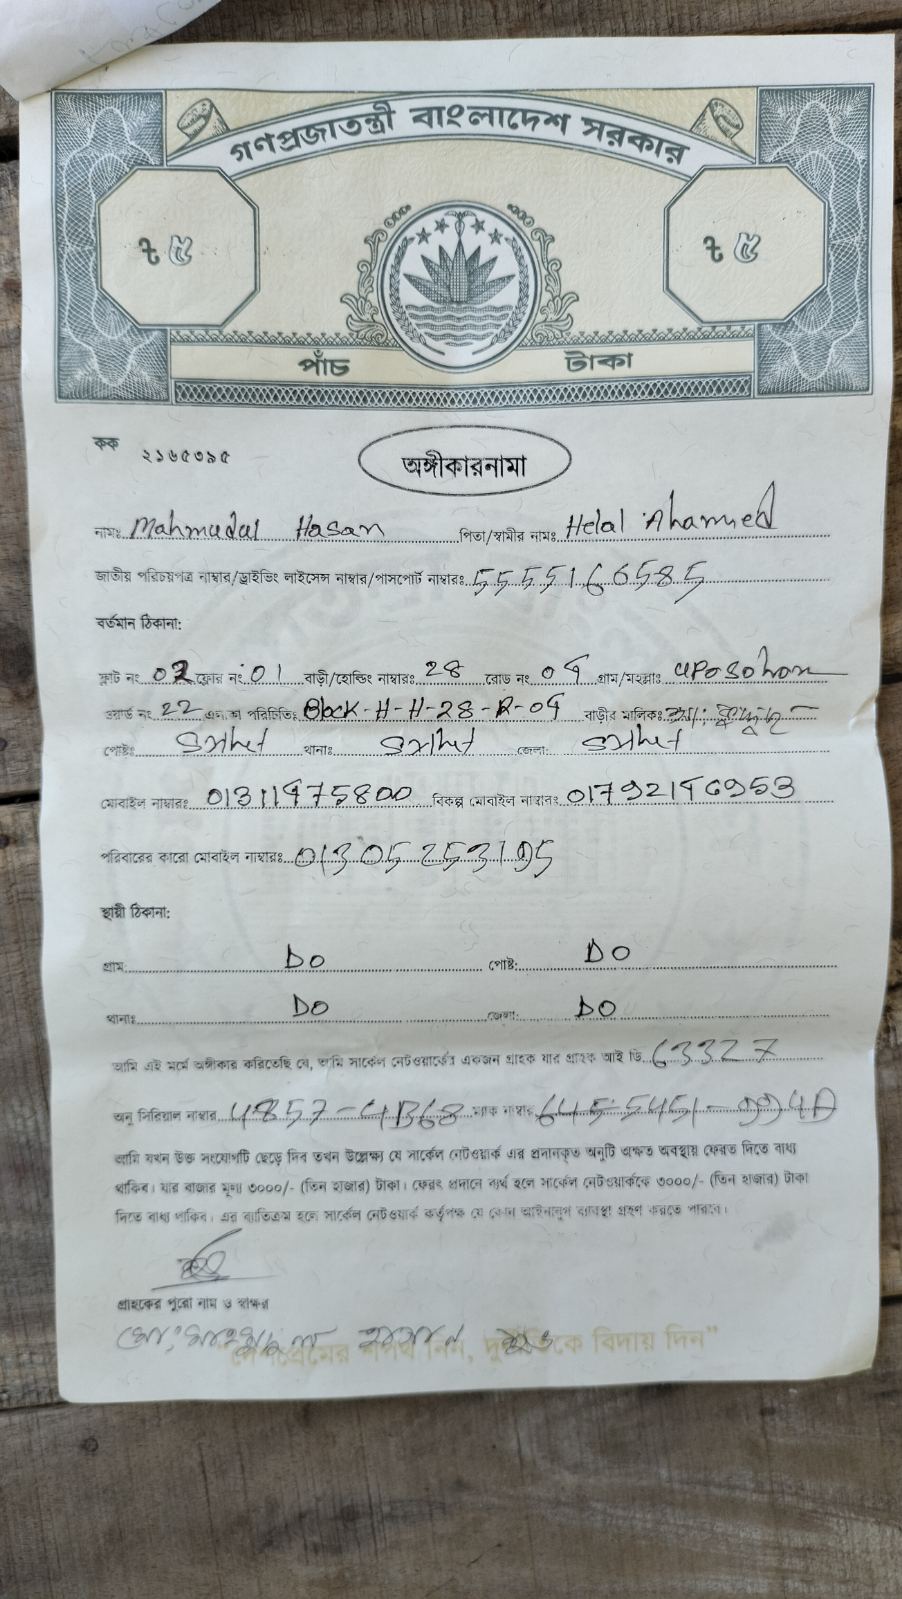 গণপ্রজাতন্ত্রী বাংলাদেশ সরকার
৳ ৫ ৳ ৫
পাঁচ টাকা
কক ২১৬৫৩৯৫
অঙ্গীকারনামা
নামঃ Mahmudul Hasan পিতা/স্বামীর নামঃ Helal Ahamed
জাতীয় পরিচয়পত্র নাম্বার/ড্রাইভিং লাইসেন্স নাম্বার/পাসপোর্ট নাম্বারঃ 5555166585
বর্তমান ঠিকানা:
ফ্লাট নং 02 ফ্লোর নং 01 বাড়ী/হোল্ডিং নাম্বারঃ 28 রোড নং 04 গ্রাম/মহল্লাঃ uposohor
ওয়ার্ড নং 22 এলাকা পরিচিতিঃ Block-H-H-28-R-04 বাড়ীর মালিকঃ
পোষ্টঃ Sylhet থানাঃ Sylhet জেলা: Sylhet
মোবাইল নাম্বারঃ 01311475800 বিকল্প মোবাইল নাম্বারঃ 01792146953
পরিবারের কারো মোবাইল নাম্বারঃ 01305253195
স্থায়ী ঠিকানা:
গ্রাম: DO পোষ্ট: DO
থানাঃ DO জেলা: DO
আমি এই মর্মে অঙ্গীকার করিতেছি যে, আমি সার্কেল নেটওয়ার্কের একজন গ্রাহক যার গ্রাহক আই ডি 63327
অনু সিরিয়াল নাম্বার 4857-4B68 ম্যাক নাম্বার 645-5451-994D
আমি যখন উক্ত সংযোগটি ছেড়ে দিব তখন উল্লেখ্য যে সার্কেল নেটওয়ার্ক এর প্রদানকৃত অনুটি অক্ষত অবস্থায় ফেরত দিতে বাধ্য
থাকিব। যার বাজার মূল্য ৩০০০/- (তিন হাজার) টাকা। ফেরৎ প্রদানে ব্যর্থ হলে সার্কেল নেটওয়ার্ককে ৩০০০/- (তিন হাজার) টাকা
দিতে বাধ্য থাকিব। এর ব্যতিক্রম হলে সার্কেল নেটওয়ার্ক কর্তৃপক্ষ যে কোন আইনানুগ ব্যবস্থা গ্রহণ করতে পারবে।
গ্রাহকের পুরো নাম ও স্বাক্ষর
মো: মাহমুদুল হাসান
"দেশপ্রেমের শপথ নিন, দুর্নীতিকে বিদায় দিন"